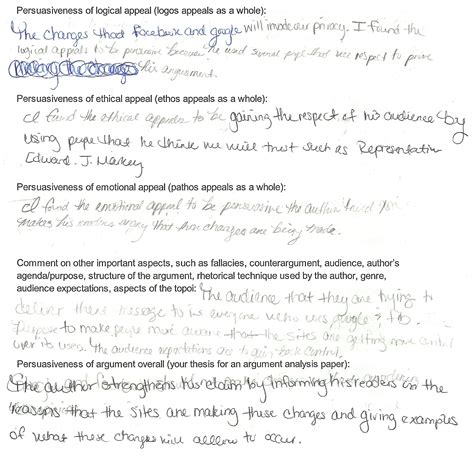 Persuasiveness of logical appeal (logos appeals as a whole):
The changes that Facebook and google will invade our privacy. I found the
logical appeals to be persuasive because he used several that we respect to prove
his argument.
Persuasiveness of ethical appeal (ethos appeals as a whole):
I found the ethical appeals to be gaining the respect of his audience by
using that he think we will trust such as Representative
Edward. J. Markey
Persuasiveness of emotional appeal (pathos appeals as a whole):
I find the emotional appeal to be persuasive the author
makes his that changes are being made.
Comment on other important aspects, such as fallacies, counterargument, audience, author's
agenda/purpose, structure of the argument, rhetorical technique used by the author, genre,
audience expectations, aspects of the topoi: The audience that they are trying to
deliver message to is everyone who uses google
purpose to make more aware that the sites are getting more control
over its users. The audience is to gain back control.
Persuasiveness of argument overall (your thesis for an argument analysis paper):
The author strengthens his claim by informing his readers on the
reasons that the sites are making these changes and giving examples
of what these changes will allow to occur.